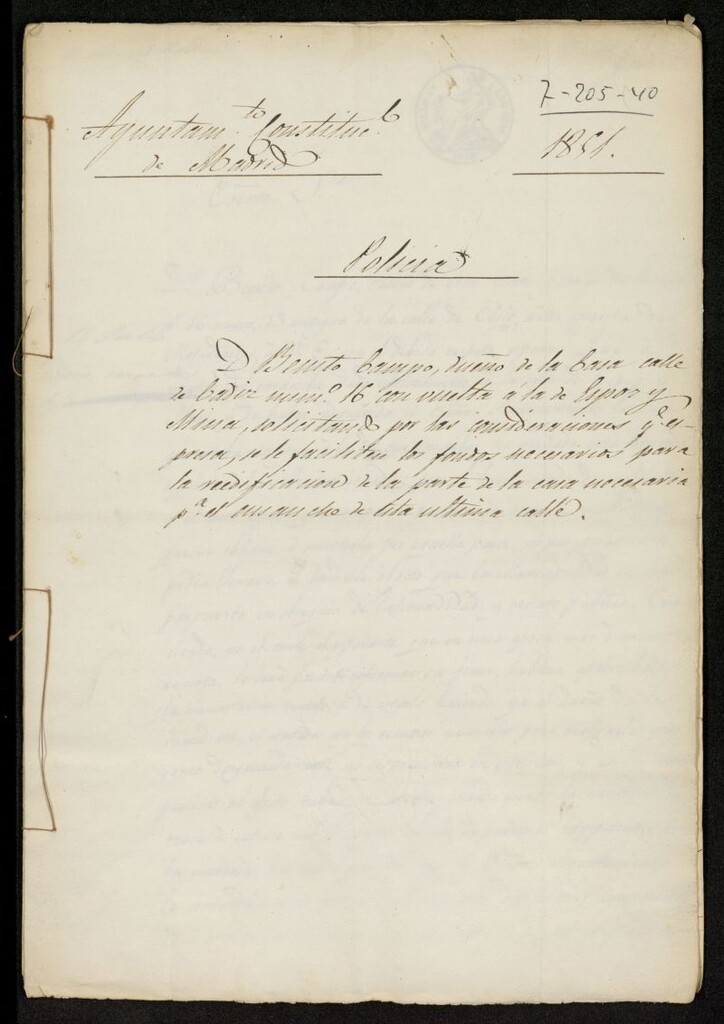 7-205-40
Ayuntam.to Constituc.l
de Madrid
1851.
Policia
D Benito Campo, dueño de la Casa calle
de Cadiz num.o 16 con vuelta á la de Espoz y
Mina, solicitando por las consideraciones q.e es-
presa, se le faciliten los fondos necesarios para
la reedificacion de la parte de la casa necesaria
p.a el ensanche de esta ultima calle.